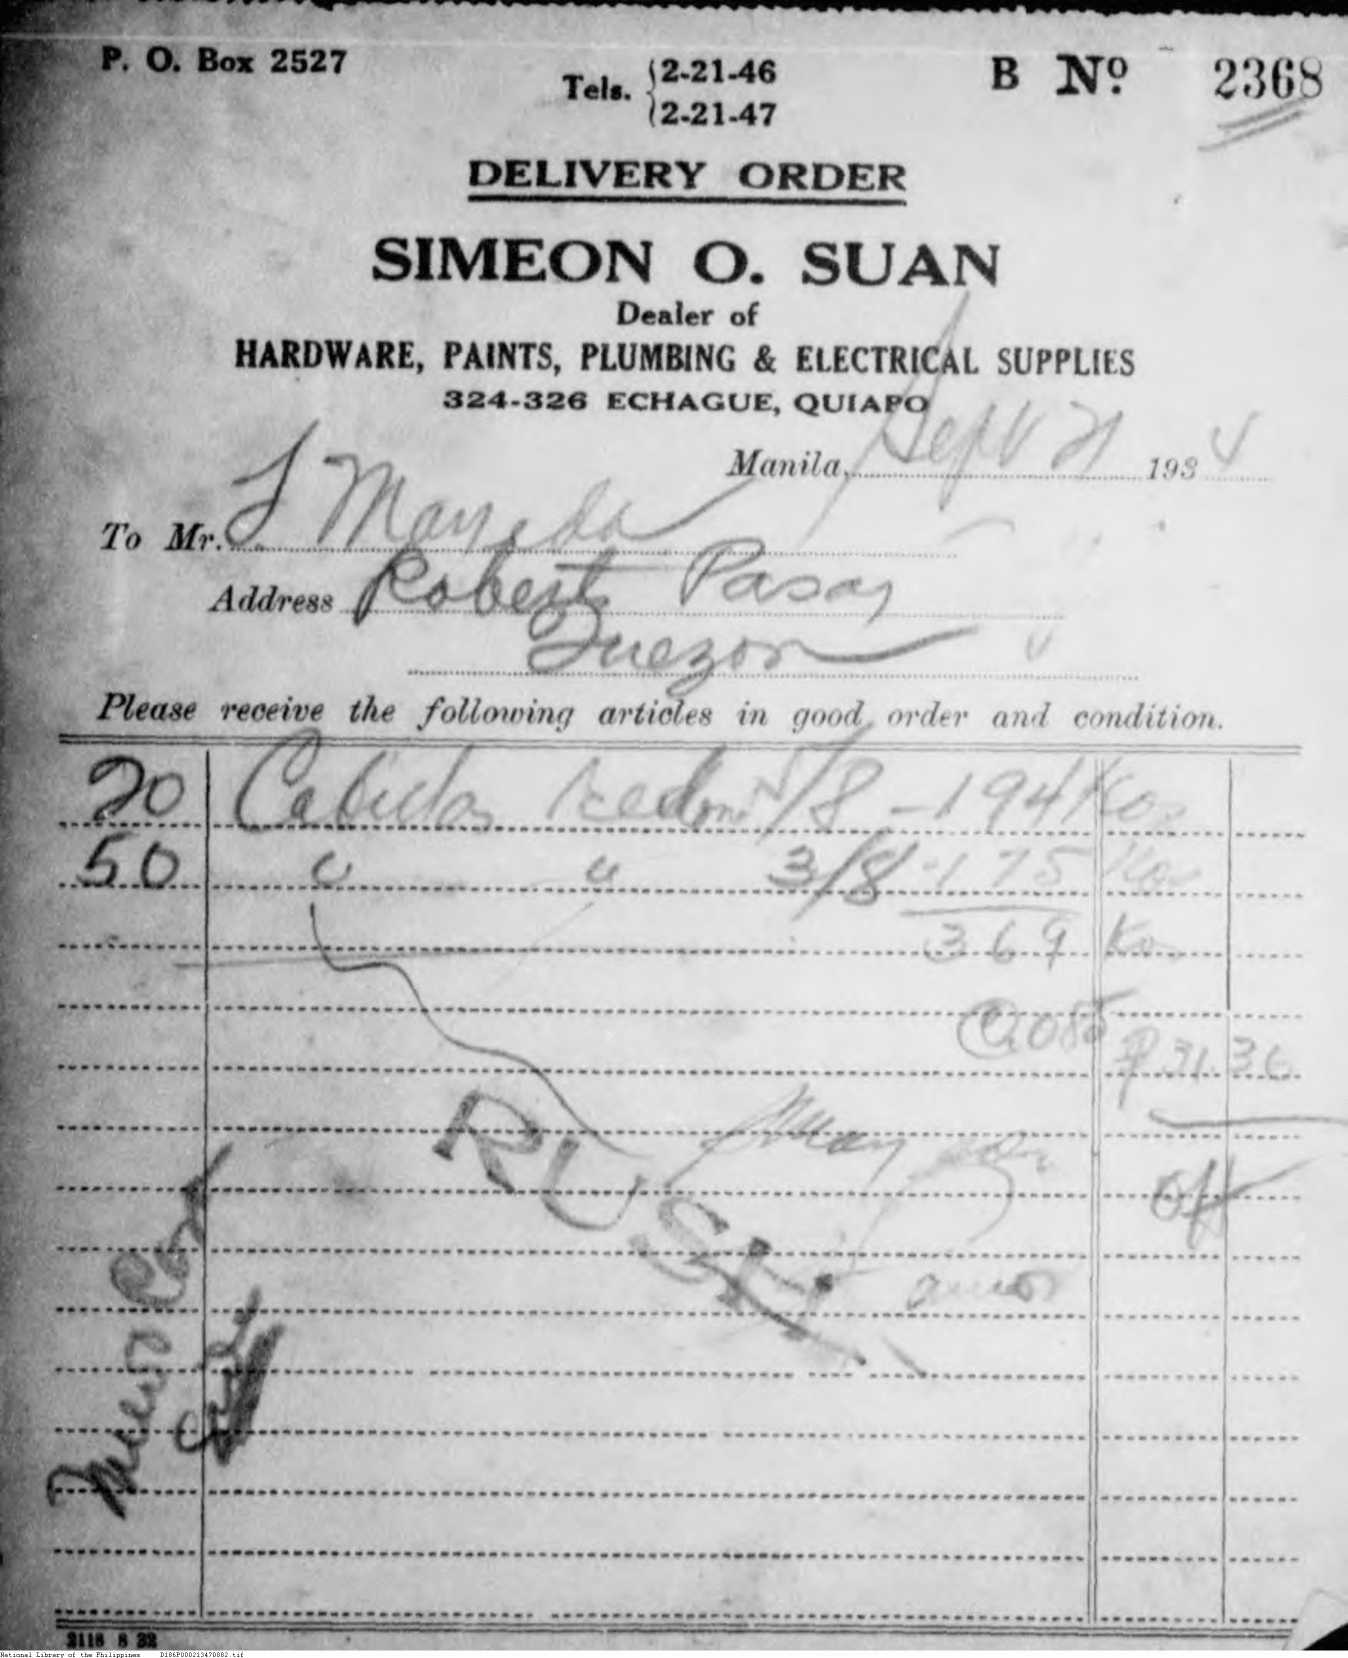 P. O. Box 2527
Tels. 2-21-46
2-21-47
B No. 2368
DELIVERY ORDER
SIMEON O. SUAN
Dealer of
HARDWARE, PAINTS, PLUMBING & ELECTRICAL SUPPLIES
324-326 ECHAGUE, QUIAPO
Manila, Sept 21 1934
To Mr.
Address Roberts Pasay
Quezon
Please receive the following articles in good order and condition.
20 Cabillas 5/8 - 194 Kos
50 " " 3/8 - 175 Kos
369 Kos
@ 0.085 ₱31.36
RUSH
2118 8 32
National Library of the Philippines D186P000213470882.tif